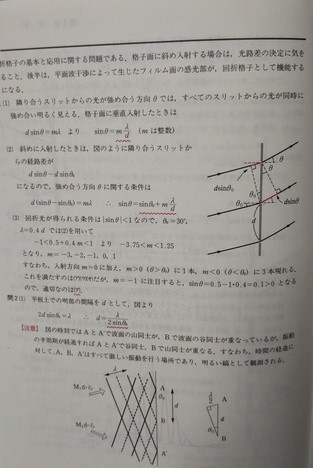 折格子の基本と応用に関する問題である。格子面に斜め入射する場合は、光路差の決定に気を
ること、後半は、平面波干渉によって生じたフィルム面の感光部が、回折格子として機能する
になる。
(1) 隣り合うスリットからの光が強め合う方向θでは、すべてのスリットからの光が同時に
強め合い明るく見える。格子面に垂直入射したときは
d sinθ=mλ より sinθ=m λ/d (mは整数)
(2) 斜めに入射したときは、図のように隣り合うスリットか
らの経路差が
d sinθ−d sinθ₀
になるので、強め合う方向θに関する条件は
d(sinθ−sinθ₀)=mλ ∴ sinθ=sinθ₀+m λ/d
(3) 回折光が得られる条件は|sinθ|<1なので、θ₀=30°,
λ=0.4d では(2)を用いて
−1<0.5+0.4m<1 より −3.75<m<1.25
となり、m=−3, −2, −1, 0, 1
すなわち、入射方向 m=0 に加え、m>0 (θ>θ₀) に1本、m<0 (θ<θ₀) に3本現れる。
これを満たすのは m=−1 に注目すると、sinθ=0.5−1・0.4=0.1>0 となる
ので、適切なのは
問2(1) 平板上での明部の間隔をdとして、図より
2d sinθ₀=λ ∴ d=λ/2 sinθ₀
【注意】 図の時刻ではAとA′で波面の山同士が、Bで波面の谷同士が重なっているが、振動
の半周期が経過すればAとA′で谷同士、Bで山同士が重なる。すなわち、時間の経過に
対して、A, B, A′はすべて激しい振動を行う場所であり、明るい縞として観測される。
θ
θ₀
d
dsinθ₀
dsinθ
λ
A
θ₀
d
B
A′
A
λ/2
d
B